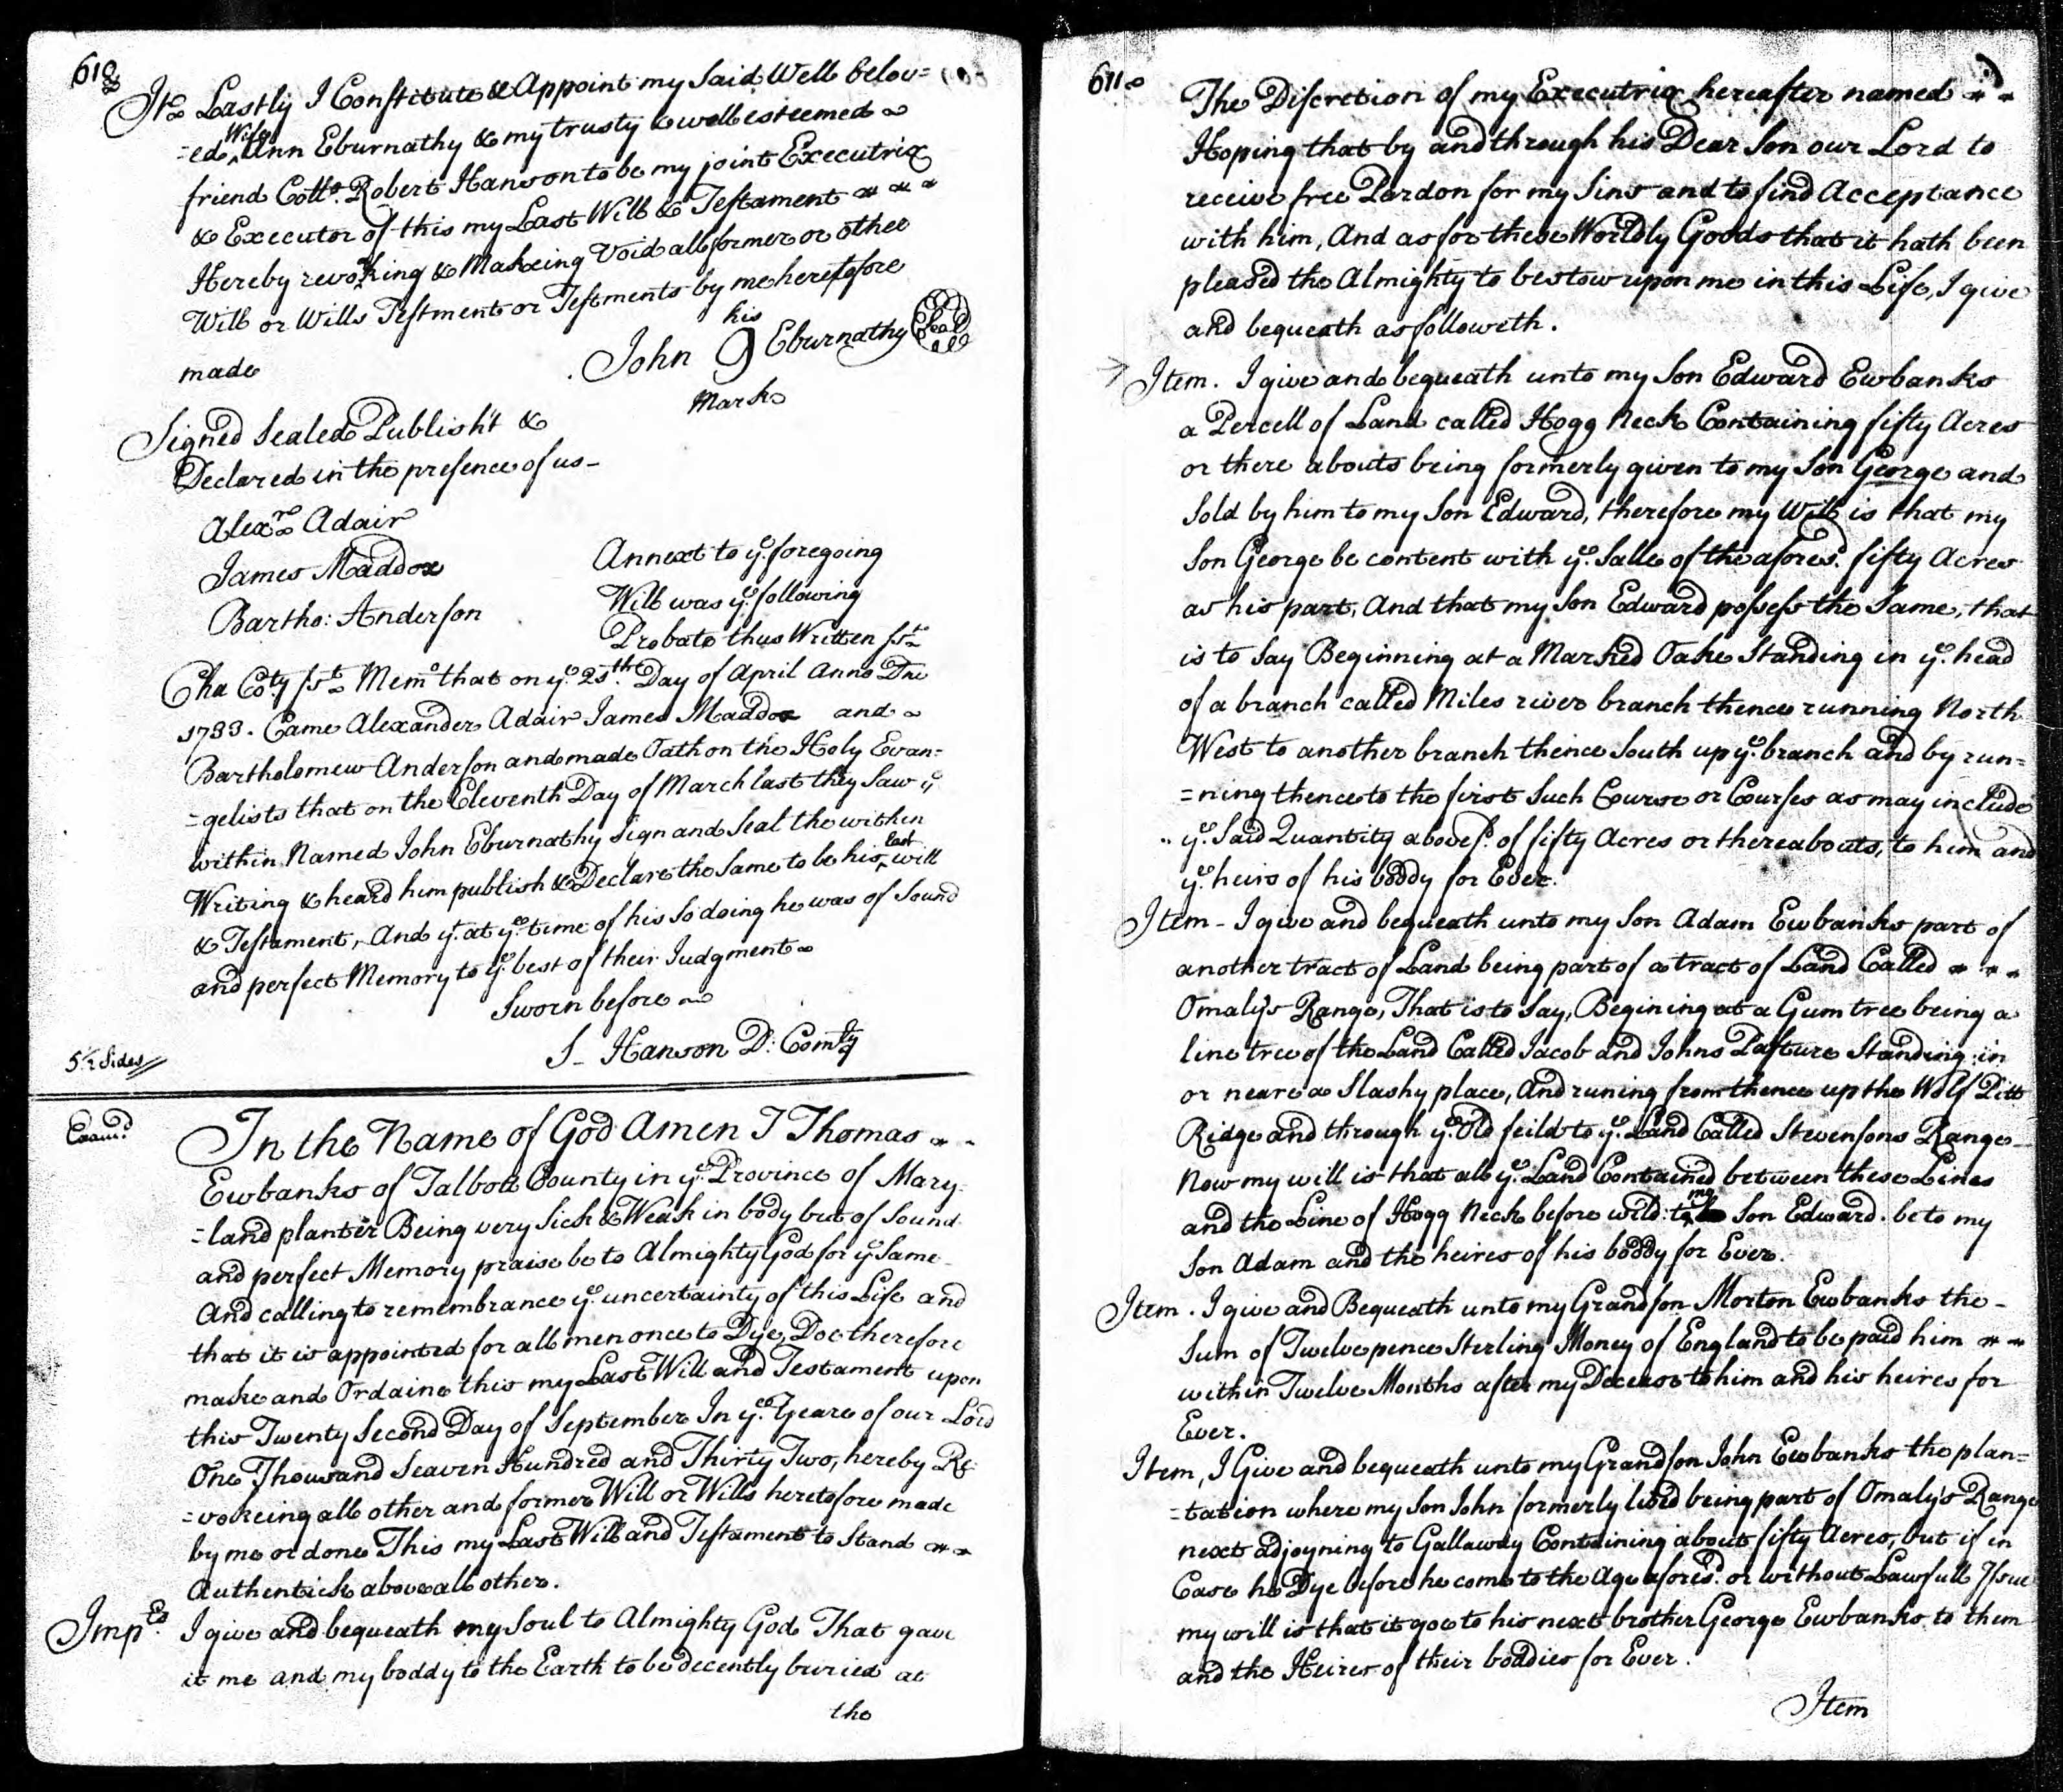 610
Ite Lastly I Constitute & Appoint my Said Well belov=
=ed Wife Ann Eburnathy & my trusty & well esteemed
friend Collo. Robert Hanson to be my joint Executrix
& Executor of this my Last Will & Testament
Hereby revoking & Makeing Void all former or other
Will or Wills Testment or Testments by me heretofore
made
his
John 9 Eburnathy Seal
Mark
Signed Sealed Publish't &
Declared in the presence of us -
Alexr. Adair
James Maddox
Bartho: Anderson
Annext to ye. foregoing
Will was ye. following
Probate thus Written sst.
Cha Coty sst. Memo that on ye. 25th. Day of April Anno Dni
1733. Came Alexander Adair James Maddox and
Bartholomew Anderson and made Oath on the Holy Evan=
=gelists that on the Eleventh Day of March last they Saw ye
within Named John Eburnathy Sign and Seal the within
Writing & heard him publish & Declare the Same to be his last will
& Testament, And yt. at ye. time of his So doing he was of Sound
and perfect Memory to ye. best of their Judgment
Sworn before
S- Hanson D: Comty
5 1/2 Sides
Examd.
In the Name of God Amen I Thomas
Ewbanks of Talbott County in ye. Province of Mary-
=land planter Being very Sick & Weak in body but of Sound
and perfect Memory praise be to Almighty God for ye Same
And calling to remembrance ye. uncertainty of this Life and
that it is appointed for all men once to Dye, Doe therefore
make and Ordaine this my Last Will and Testament upon
this Twenty Second Day of September In ye. Yeare of our Lord
One Thousand Seaven Hundred and Thirty Two, hereby Re-
=vokeing all other and former Will or Wills heretofore made
by me or done This my Last Will and Testament to Stand
Authentick above all other.
Imps. I give and bequeath my Soul to Almighty God That gave
it me and my boddy to the Earth to be decently buried at
the
611
The Discretion of my Executrix hereafter named
Hoping that by and through his Dear Son our Lord to
receive free Pardon for my Sins and to find Acceptance
with him, And as for these Worldly Goods that it hath been
pleased the Almighty to bestow upon me in this Life, I give
and bequeath as followeth.
Item. I give and bequeath unto my Son Edward Ewbanks
a Percell of Land called Hogg Neck Containing fifty Acres
or there abouts being formerly given to my Son George and
Sold by him to my Son Edward, therefore my Will is that my
Son George be content with ye. Salle of the afores.d fifty Acres
as his part, And that my Son Edward possess the Same, that
is to Say Beginning at a Marked Oake Standing in ye. head
of a branch called Miles river branch thence running North
West to another branch thence South up ye. branch and by run=
=ning thence to the first Such Course or Courses as may include
ye. Said Quantity aboves.d of fifty Acres or thereabouts, to him and
ye. heirs of his boddy for Ever.
Item - I give and bequeath unto my Son Adam Ewbanks part of
another tract of Land being part of a tract of Land Called
Omaly's Range, That is to Say, Begining at a Gum tree being a
line tree of the Land Called Jacob and Johns Pasture Standing in
or neare a Slashy place, And runing from thence up the Wolf Pitt
Ridge and through ye. Old feild to ye. Land Called Stevensons Range
Now my will is that all ye. Land Contained between these Lines
and the Line of Hogg Neck before wild: to my Son Edward. be to my
Son Adam and the heires of his boddy for Ever.
Item. I give and Bequeath unto my Grandson Morton Ewbanks the -
Sum of Twelve pence Sterling Money of England to be paid him
within Twelve Months after my Decease to him and his heires for
Ever.
Item, I Give and bequeath unto my Grandson John Ewbanks the plan=
=tation where my Son John formerly lived being part of Omaly's Range
next adjoyning to Gallaway Containing about fifty Acres, but if in
Case he Dye before he come to the Age aforesd. or without Lawfull Issue
my will is that it goe to his next brother George Ewbanks to them
and the Heires of their boddies for Ever.
Item